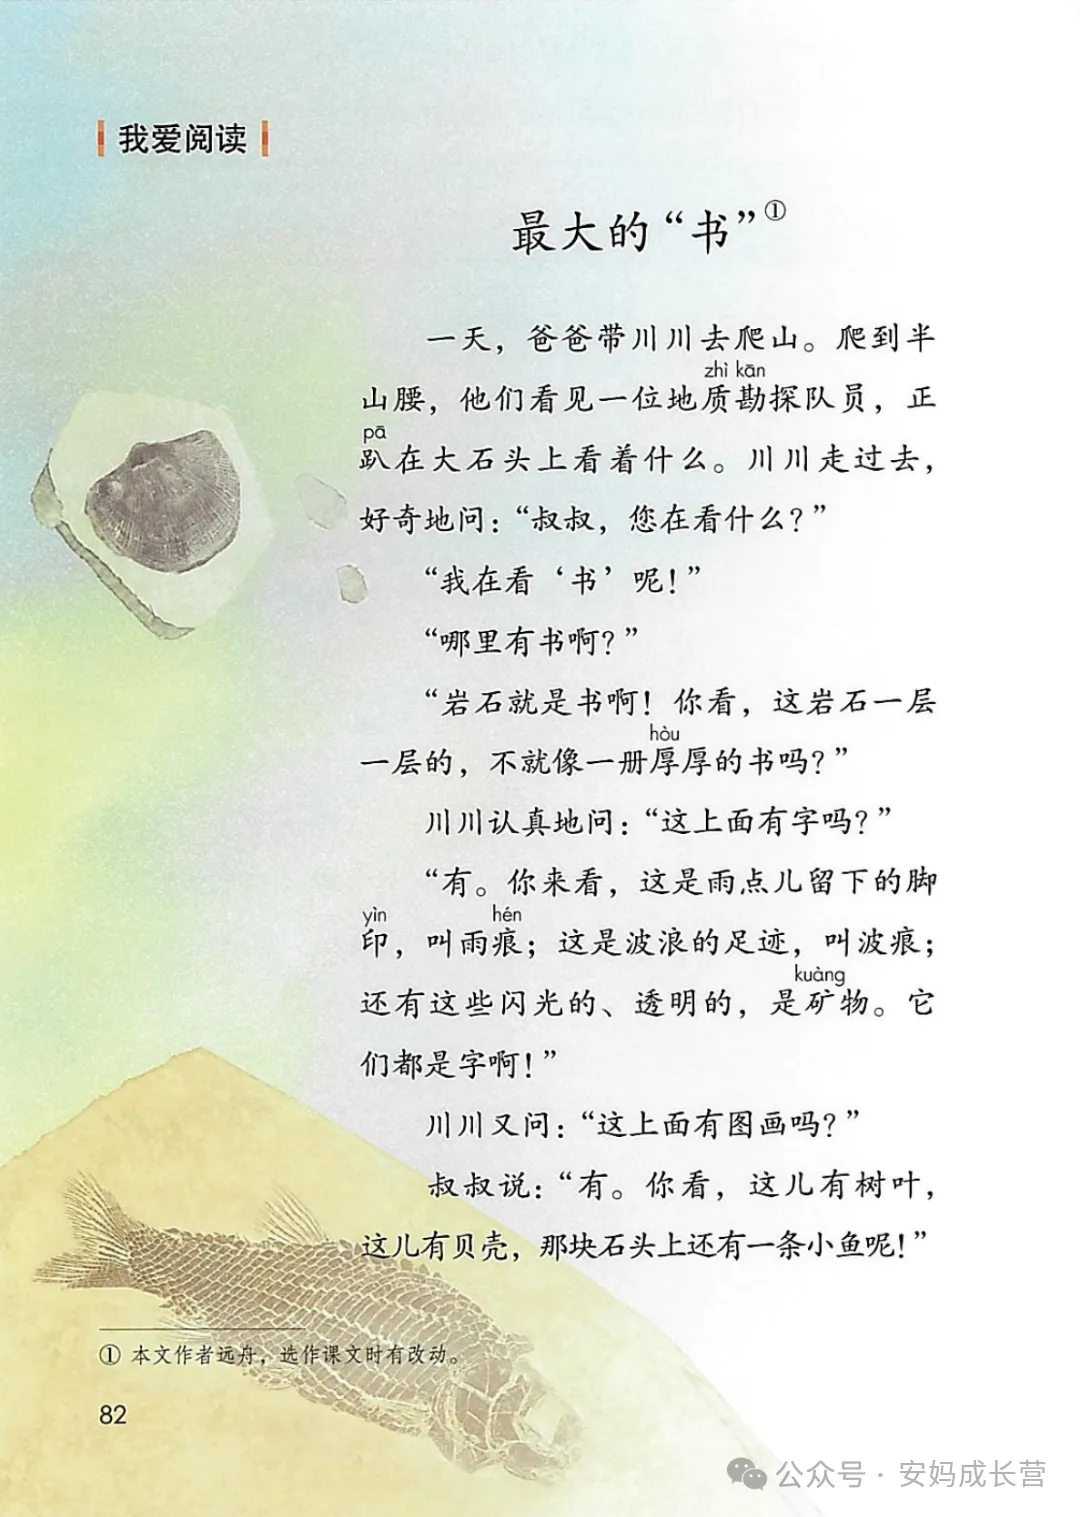 我爱阅读
最大的“书”①
一天，爸爸带川川去爬山。爬到半
zhì kān
山腰，他们看见一位地质勘探队员，正
pā
趴在大石头上看着什么。川川走过去，
好奇地问：“叔叔，您在看什么？”
“我在看‘书’呢！”
“哪里有书啊？”
“岩石就是书啊！你看，这岩石一层
hòu
一层的，不就像一册厚厚的书吗？”
川川认真地问：“这上面有字吗？”
“有。你来看，这是雨点儿留下的脚
yìn hén
印，叫雨痕；这是波浪的足迹，叫波痕；
kuàng
还有这些闪光的、透明的，是矿物。它
们都是字啊！”
川川又问：“这上面有图画吗？”
叔叔说：“有。你看，这儿有树叶，
这儿有贝壳，那块石头上还有一条小鱼呢！”
① 本文作者远舟，选作课文时有改动。
82
公众号·安妈成长营